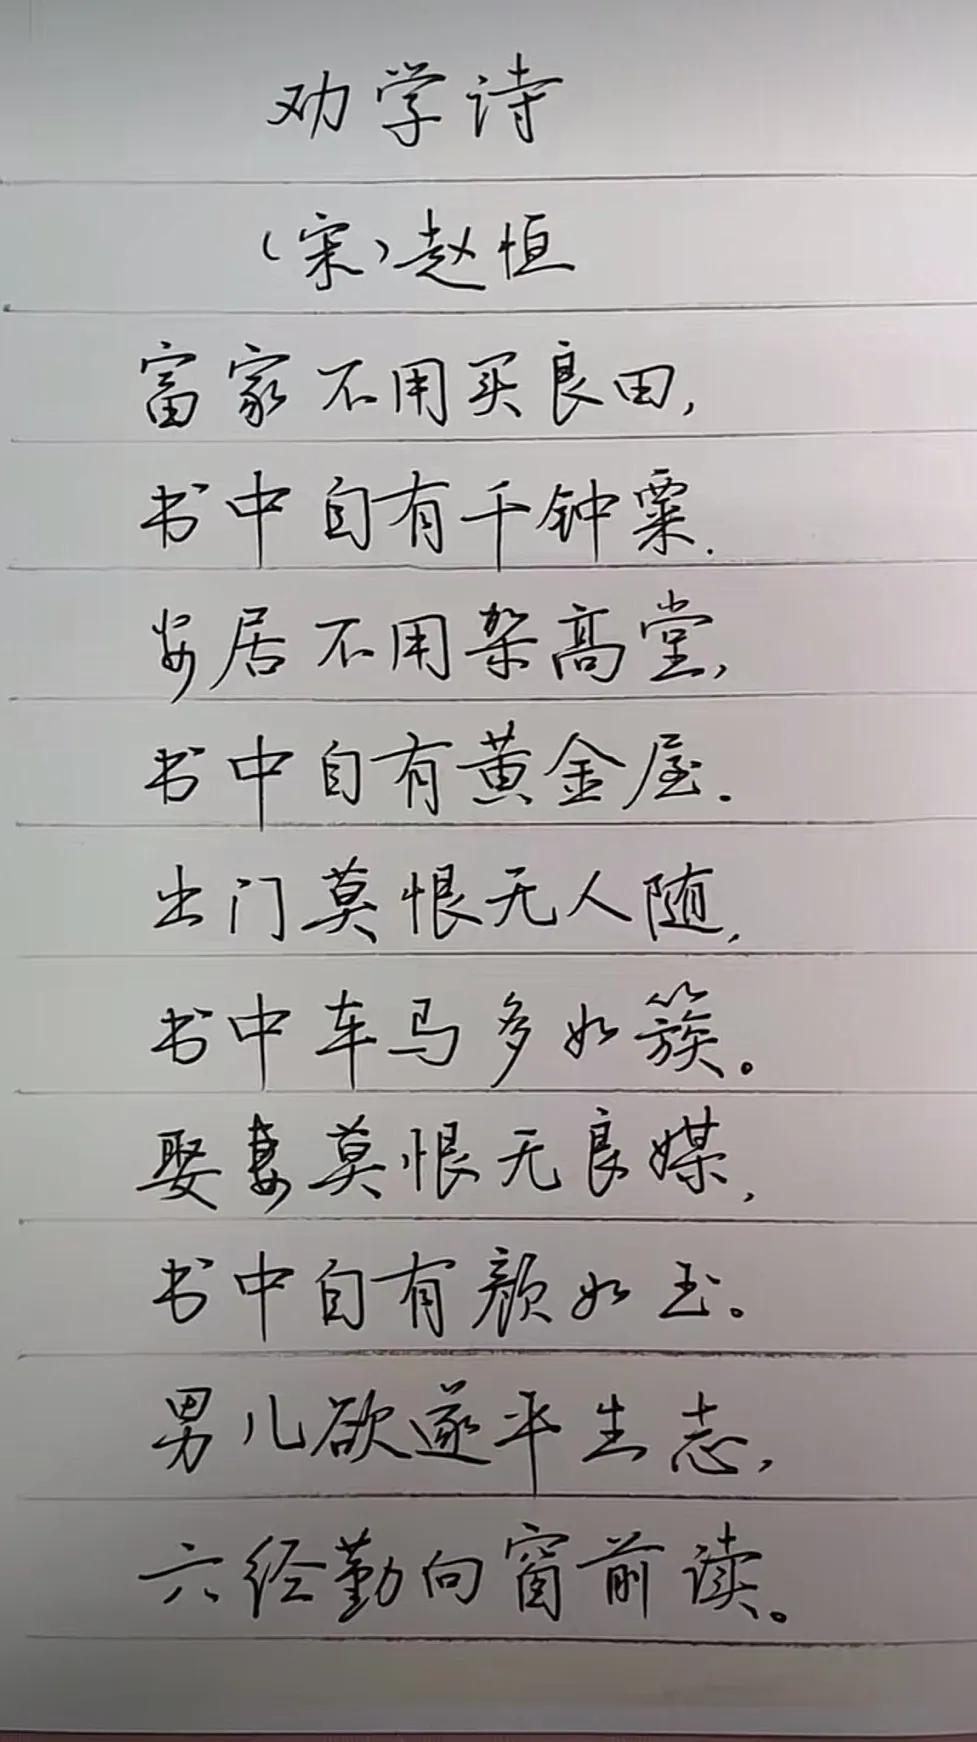 劝学诗
（宋）赵恒
富家不用买良田，
书中自有千钟粟.
安居不用架高堂，
书中自有黄金屋.
出门莫恨无人随，
书中车马多如簇。
娶妻莫恨无良媒，
书中自有颜如玉。
男儿欲遂平生志，
六经勤向窗前读。